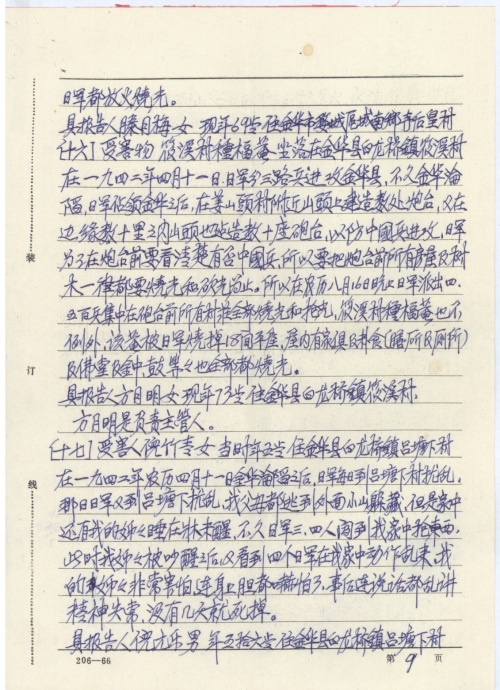 日军都放火烧光。
具报告人滕月梅女 现年69岁住金华市婺城区城南乡寺后皇村
〔十六〕受害物 筱溪村種福菴坐落在金华县白龙桥镇筱溪村
在一九四二年四月十一日.日军分三路兵进攻金华县,不久金华淪
陷,日军佔领金华之后,在姜山頭村附近山头上建造数处炮台,又在
边缘数十里之内山頭也造数十座砲台,以防中國兵进攻,日军
为了在炮台前要看清楚有否中國兵,所以要把炮台前所有房屋及树
木一律都要烧光和砍光为止。所以在农历八月16日晚上日军派出四.
五百兵集中在砲台前所有村莊全部烧光和抢光,筱溪村種福菴也不
例外,该菴被日军烧掉18间平屋,屋内有家俱及粮食(膳所及厕所)
及佛堂及金中鼓等々也全部都烧光。
具报告人方月明女 现年73岁住金华县白龙桥鎮筱溪村.
方月明是负责主管人。
〔十七〕受害人倪竹青女 当时年五岁 住金华县白龙桥鎮吕塘下村
在一九四二年农历四月十一日金华淪陷之后,日军每日到吕塘下村扰乱.
那日日军又到吕塘下扰乱,我父母都逃到外面小山躲藏,但是家中
还有我的姊々睡在床未醒,不久日军三、四人闯到我家中抢東西.
此时我姊々被吵醒之后,又看到四个日军在我家中动作乱来,我
的姊々非常害怕,连身上胆都嚇怕了,事后连说话都乱讲
精神失常,没有几天就死掉。
具报告人倪尤乐 男 年五拾六岁住金华县白龙桥鎮吕塘下村
装
订
线
206—66
第 9 页